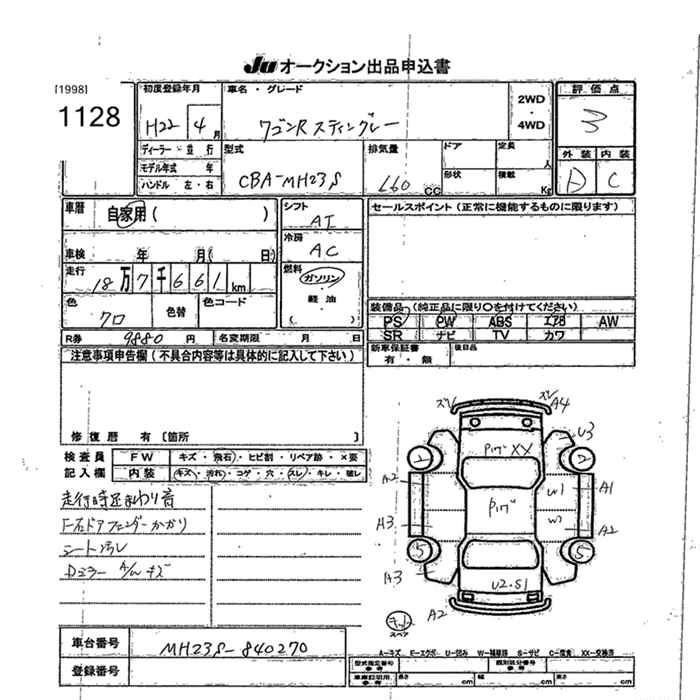 Ju オークション出品申込書
[1998]
1128
初度登録年月
H22 4 月
車名・グレード
ワゴンR スティングレー
2WD
・
4WD
評価点
3
外装 内装
D C
ディーラー・並行
モデル年式 年
ハンドル 左・右
型式
CBA-MH23S
排気量
660 CC
ドア
形状
定員
人
積載
Kg
車歴
自家用( )
車検 年 月( 日)
走行
18万7千661 km
シフト
AT
冷房
AC
燃料
ガソリン
軽油
( )
色
クロ
色替
色コード
R券 9880 円
名変期限 月 日
セールスポイント(正常に機能するものに限ります)
装備品(純正品に限り○を付けてください)
PS PW ABS エアB AW
SR ナビ TV カワ
新車保証書
有・無
後日品
注意事項申告欄(不具合内容等は具体的に記入して下さい)
修復歴 有〔箇所 〕
検査員
記入欄
FW キズ・飛石・ヒビ割・リペア跡・×要
内装 キズ・汚れ・コゲ・穴・スレ・キレ・破レ
走行時足まわり音
F右ドアフェンダーかかり
シート汚レ
Dミラー A/ムキズ
ズレ ズレ A4
U3
PカゲXX
2 2
A2 W1 A1
Pカゲ
A3 W1 A2
5 5
A3
U2.S1
A2
キット
スペア
A-キズ E-エクボ U-凹み W-補修跡 S-サビ C-腐食 XX-交換済
車台番号 MH23S-840270
登録番号
型式指定番号
参考
類別区分番号
参考
車庫証明用
参考
長さ cm
幅 cm
高さ cm